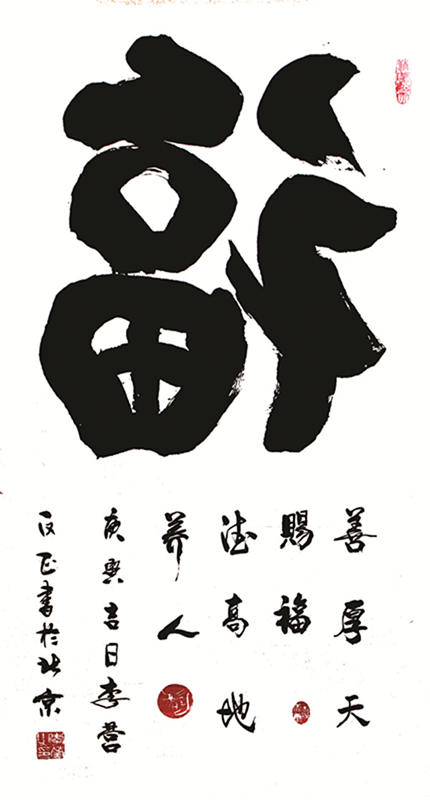 福
善厚天
賜福
德高地
养人
庚寅吉日李营
反正書於北京